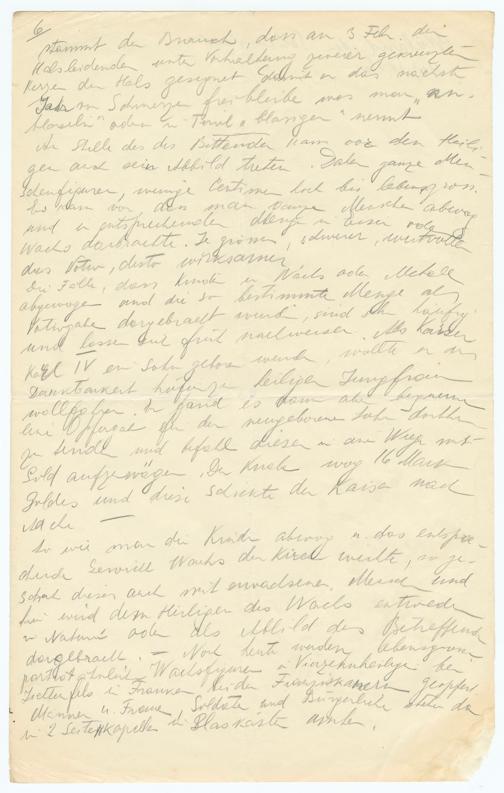 6
stammt der Brauch, dass am 3 Febr. die
Halsleidenden unter Vorhaltung zweier gekreuzten
Kerzen der Hals gesegnet damit er das nächste
Jahr von Schmerzen frei bleibe was man „ein-
blaseln" oder in Tirol „blasigen" nennt
An Stelle des des Bittenden kam vor den Heili-
gen auch sein Abbild treten. Daher ganze Men-
schenfiguren, wenige Centime hoch bis lebensgross.
Es kam vor dass man ganze Menschen abwog
und in entsprechender Menge in Eisen oder
Wachs darbrachte. Je grösser, schwerer, wertvoller
das Votiv, desto wirksamer
Die Fälle, dass Kinder in Wachs oder Metall
abgewogen und die so bestimmte Menge als
Votivgabe dargebracht wurde, sind sehr häufig
und lassen sich früh nachweisen. Als Kaiser
Karl IV ein Sohn geboren wurde, wollte er in
Dankbarkeit heiligen Jungfrau
wollfahren. Er fand es dann aber bequemer
eine Opfergabe für den neugeborenen Sohn dorthin
zu senden und befahl diesen in der Wiege mit
Gold aufzuwägen. Der Knabe wog 16 Mark
Goldes und diese schickte der Kaiser nach
Aachen —
So wie man die Kinder abwog u. das entspre-
chende Gewicht Wachs der Kirche weihte, so ge-
schah dieses auch mit erwachsenen Menschen und
hier wird dem Heiligen das Wachs entweder
in Natura oder als Abbild des Betreffenden
dargebracht. — Noch heute werden lebensgrosse
porträtähnliche Wachsfiguren in Vierzehnheiligen bei
Lichtenfels in Franken bei den Franziskanern geopfert
Männer u. Frauen, Soldaten und Bürgerliche stehen da
in 2 Seitenkapellen in Glaskästen umher.